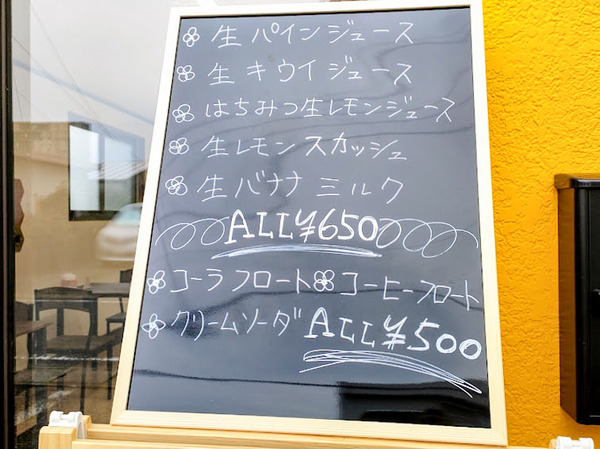 生パインジュース
生キウイジュース
はちみつ生レモンジュース
生レモンスカッシュ
生バナナミルク
ALL¥650
コーラフロート コーヒーフロート
クリームソーダ ALL¥500